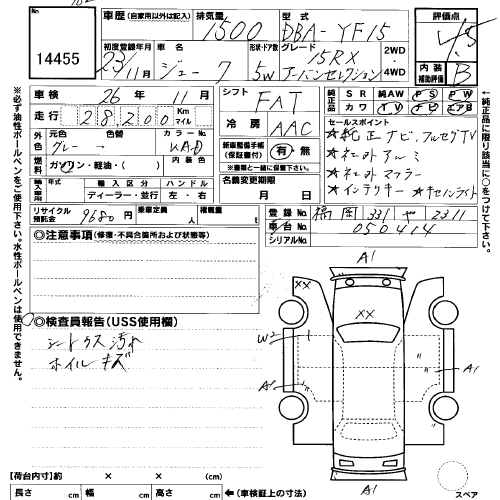 No
14455
車歴 (自家用以外は記入)
排気量 1500
型式 DBA-YF15
評価点 4.5
内装補助評価 B
初度登録年月 23/11月
車名 ジューク
形状・ドア数 5W
グレード 15RX アーバンセレクション
2WD
4WD
車検 26年 11月
走行 28200 Km マイル
シフト FAT
冷房 AAC
純正品 SR 純AW PS PW
カワ TV ナビ エアB
外色 元色 グレー 色替
カラーNo. KAD
内装色
燃料 ガソリン・軽油・( )
新車整備手帳(保証書付) 有・無
名義変更期限 月 日
輸入車 年式 輸入区分 ディーラー・並行
ハンドル 左・右
リサイクル預託金 9680円
乗車定員 人
積載量 t
セールスポイント
★純正ナビ、フルセグTV
★社外アルミ
★社外マフラー
★インテリキー ★キセノンライト
登録No. 福岡 331 や 2311
車台No. 050414
シリアルNo.
◎注意事項 (修復・不具合箇所および状態等)
◎検査員報告(USS使用欄)
シートウス汚れ
ホイルキズ
A1
XX
XX
W2
A1
A1
A1
スペア
【荷台内寸】約 × × (cm)
長さ cm 幅 cm 高さ cm ←(車検証上の寸法)
※必ず油性ボールペンをご使用下さい。水性ボールペンは使用できません。
←純正品に限り該当に○をつけて下さい。